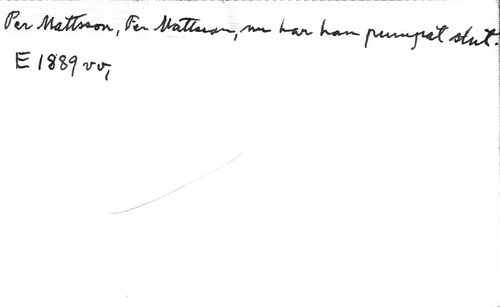 Per Mattsson, Per Mattsson, nu har han pumpat slut.
E 1889 vv,